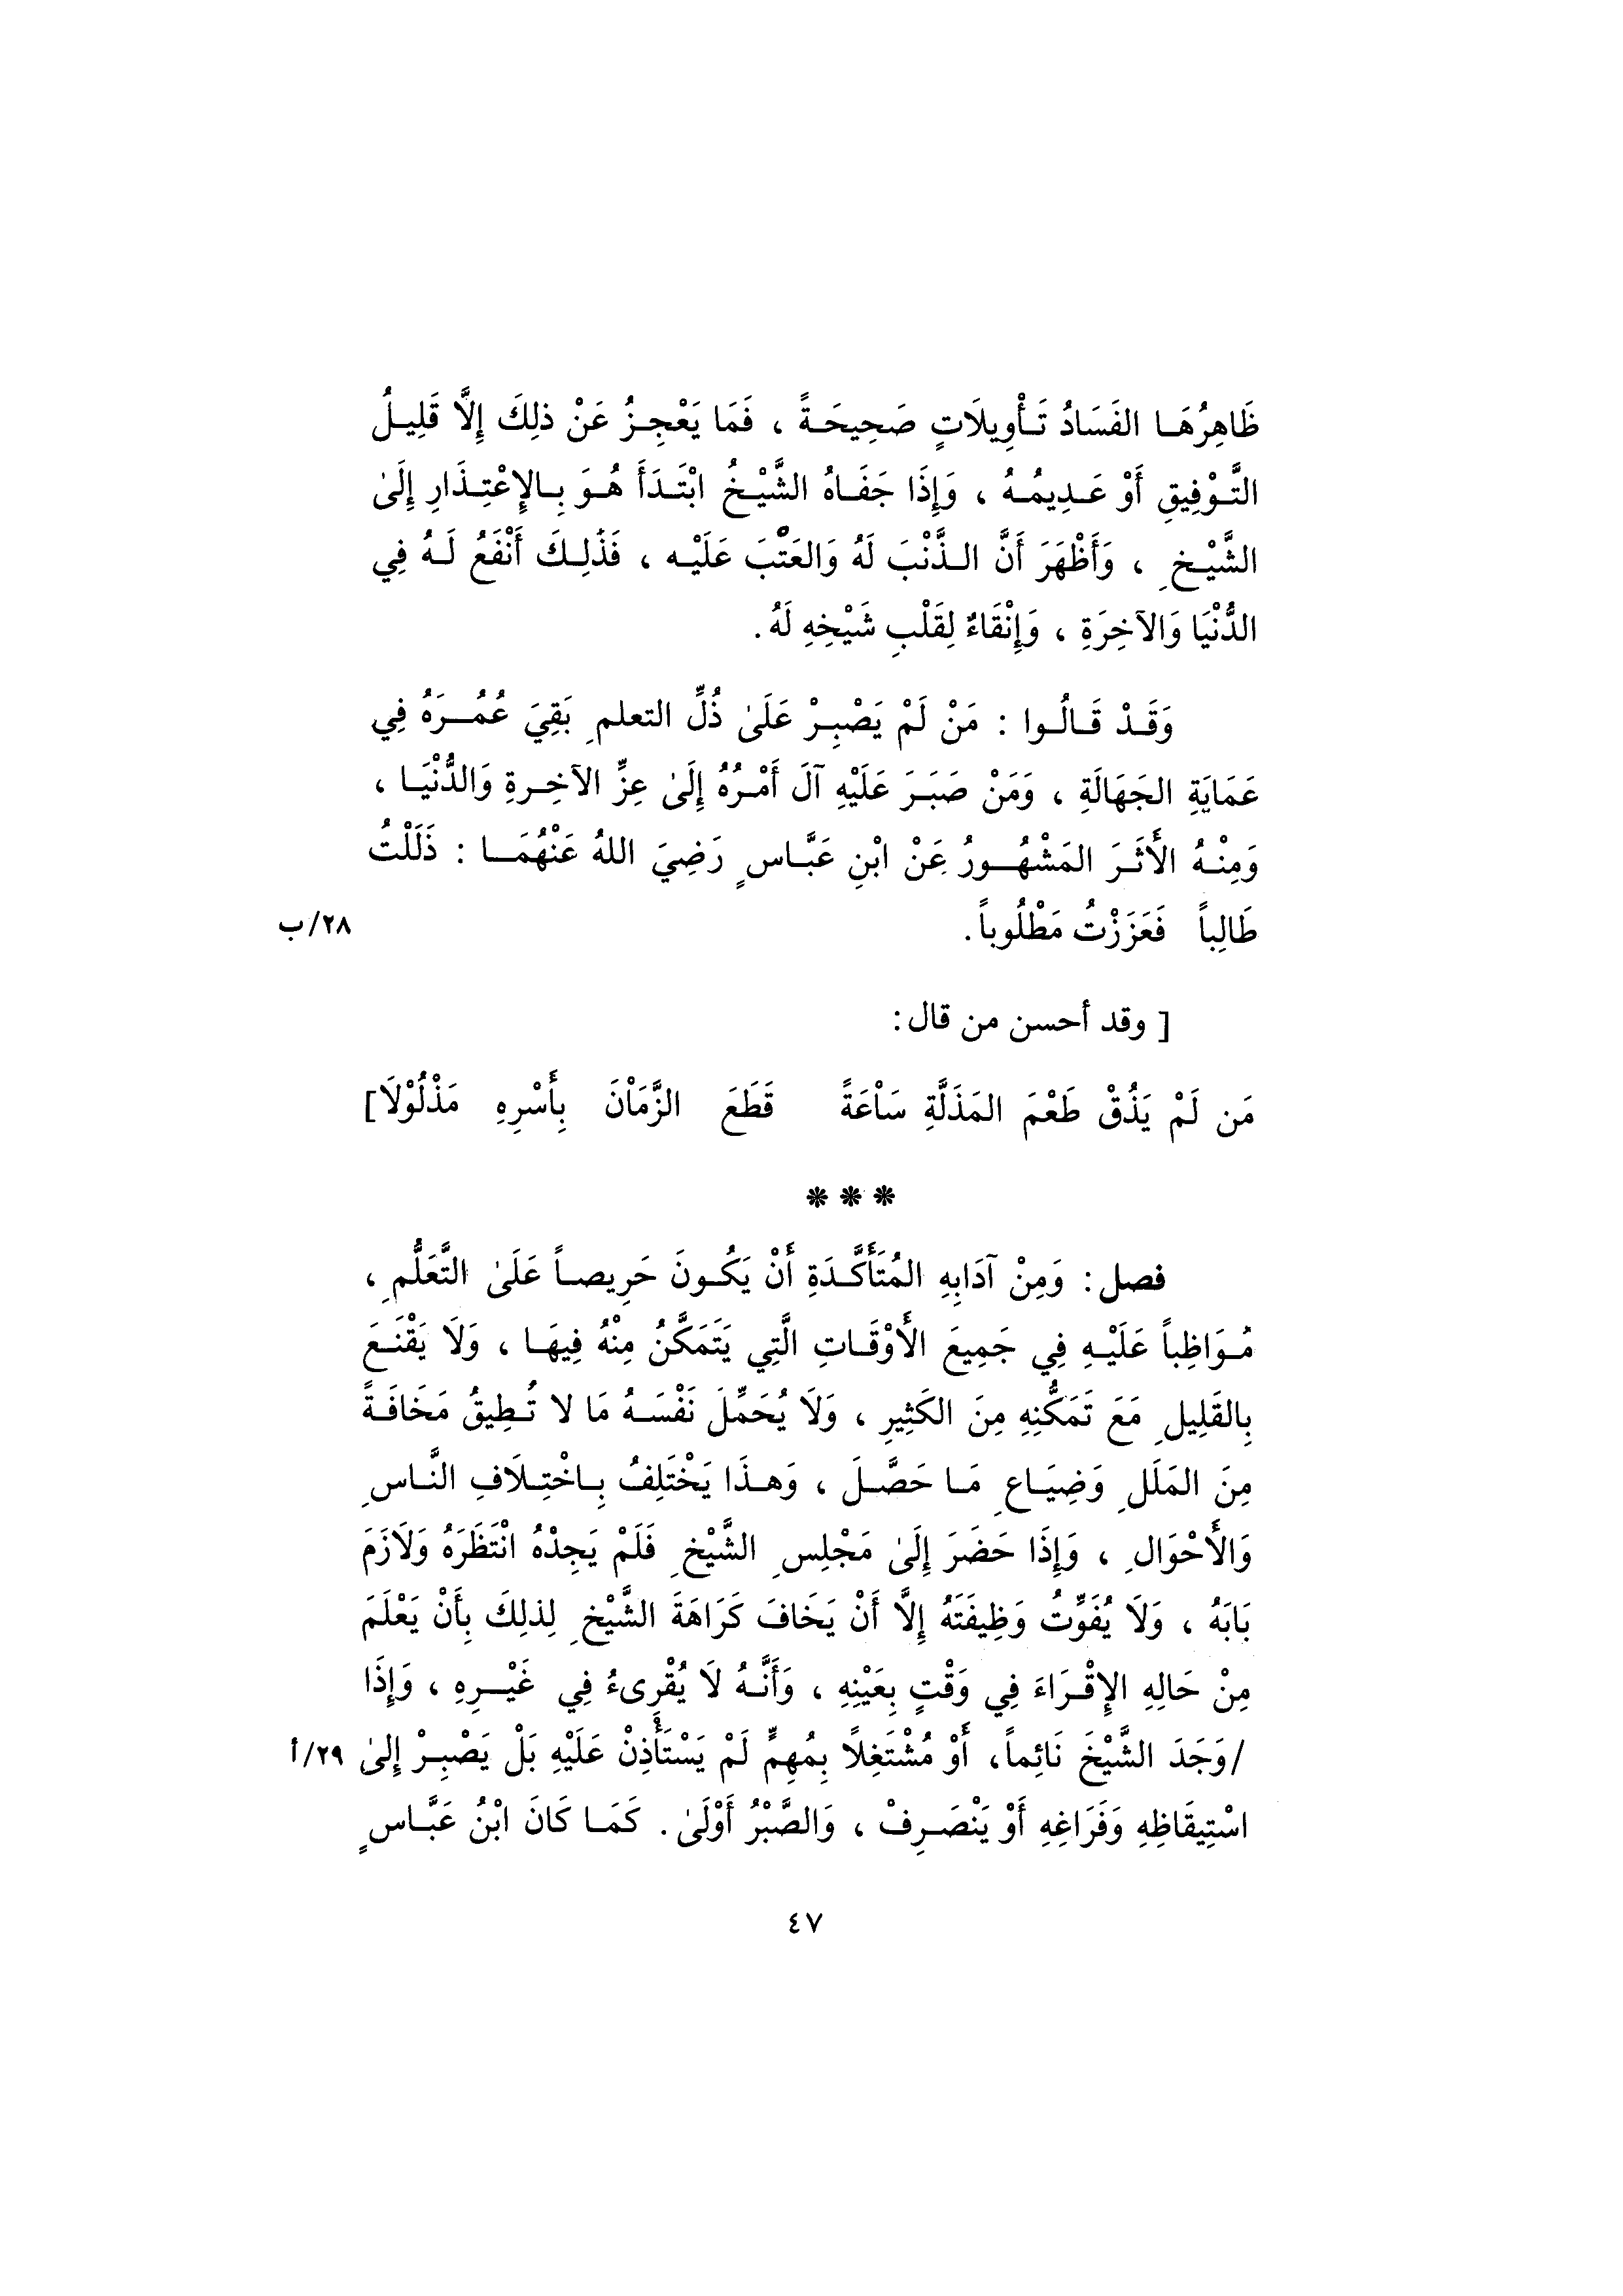 ظَاهِرُهَا الفَسَادُ تَأْوِيلَاتٍ صَحِيحَةً ، فَمَا يَعْجِزُ عَنْ ذلِكَ إِلَّا قَلِيلُ
التَّوْفِيقِ أَوْ عَدِيمُهُ ، وَإِذَا جَفَاهُ الشَّيْخُ ابْتَدَأَ هُوَ بِالإِعْتِذَارِ إِلَىٰ
الشَّيْخِ ، وَأَظْهَرَ أَنَّ الذَّنْبَ لَهُ وَالعَتْبَ عَلَيْهِ ، فَذٰلِكَ أَنْفَعُ لَهُ فِي
الدُّنْيَا وَالآخِرَةِ ، وَإِنْقَاءٌ لِقَلْبِ شَيْخِهِ لَهُ .
وَقَدْ قَالُوا : مَنْ لَمْ يَصْبِرْ عَلَىٰ ذُلِّ التعلمِ بَقِيَ عُمُرَهُ فِي
عَمَايَةِ الجَهَالَةِ ، وَمَنْ صَبَرَ عَلَيْهِ آلَ أَمْرُهُ إِلَىٰ عِزِّ الآخِرةِ وَالدُّنْيَا ،
وَمِنْهُ الأَثَرَ المَشْهُورُ عَنْ ابْنِ عَبَّاسٍ رَضِيَ اللهُ عَنْهُمَا : ذَلَلْتُ
طَالِباً فَعَزَزْتُ مَطْلُوباً . ٢٨/ب
[ وقد أحسن من قال :
مَن لَمْ يَذُقْ طَعْمَ المَذَلَّةِ سَاْعَةً قَطَعَ الزَّمَاْنَ بِأَسْرِهِ مَذْلُوْلَا ]
***
فصل : وَمِنْ آدَابِهِ المُتَأَكَّدَةِ أَنْ يَكُونَ حَرِيصاً عَلَىٰ التَّعَلُّمِ ،
مُوَاظِباً عَلَيْهِ فِي جَمِيعَ الأَوْقَاتِ الَّتِي يَتَمَكَّنُ مِنْهُ فِيهَا ، وَلَا يَقْنَعَ
بِالقَلِيلِ مَعَ تَمَكُّنِهِ مِنَ الكَثِيرِ ، وَلَا يُحَمِّلَ نَفْسَهُ مَا لا تُطِيقُ مَخَافَةً
مِنَ المَلَلِ وَضِيَاعِ مَا حَصَّلَ ، وَهذَا يَخْتَلِفُ بِاخْتِلَافِ النَّاسِ
وَالأَحْوَالِ ، وَإِذَا حَضَرَ إِلَىٰ مَجْلِسِ الشَّيْخِ فَلَمْ يَجِدْهُ انْتَظَرَهُ وَلَازَمَ
بَابَهُ ، وَلَا يُفَوِّتُ وَظِيفَتَهُ إِلَّا أَنْ يَخَافَ كَرَاهَةَ الشَّيْخِ لِذلِكَ بِأَنْ يَعْلَمَ
مِنْ حَالِهِ الإِقْرَاءَ فِي وَقْتٍ بِعَيْنِهِ ، وَأَنَّهُ لَا يُقْرِىءُ فِي غَيْرِهِ ، وَإِذَا
/وَجَدَ الشَّيْخَ نَائِماً، أَوْ مُشْتَغِلاً بِمُهِمٍّ لَمْ يَسْتَأْذِنْ عَلَيْهِ بَلْ يَصْبِرْ إِلىٰ ٢٩/أ
اسْتِيقَاظِهِ وَفَرَاغِهِ أَوْ يَنْصَرِفْ ، وَالصَّبْرُ أَوْلَىٰ . كَمَا كَانَ ابْنُ عَبَّاسٍ
٤٧